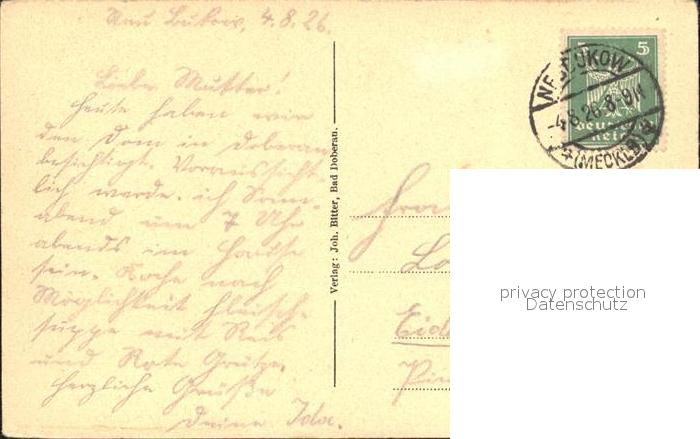 Neu Bukow, 4.8.26.
Liebe Mutter!
Heute haben wir
den Dom in Doberan
besichtigt. Voraussicht-
lich werde ich Sonn-
abend um 7 Uhr
abends im Hause
sein. Koche nach
Möglichkeit Fleisch-
suppe mit Reis
und Rote Grütze.
Herzliche Grüße
Deine Ida.
Verlag: Joh. Bitter, Bad Doberan.
5
NEUBUKOW
-4.8.26.8-9V
(MECKLB)
Deutsches
Reich
Frau
privacy protection
Datenschutz